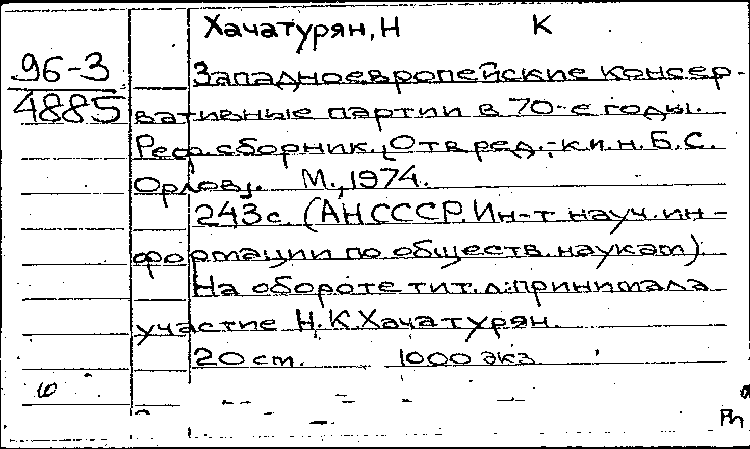 Хачатурян, Н К
96-3
4885
Западноевропейские консер-
вативные партии в 70-е годы.
Реф. сборник. [Отв. ред.,- к.и.н. Б.С.
Орлов]. М., 1974.
243 с. (АН СССР. Ин-т науч. ин-
формации по обществ. наукам).
На обороте тит. л.: принимала
участие Н.К Хачатурян.
20 ст. 1000 экз.